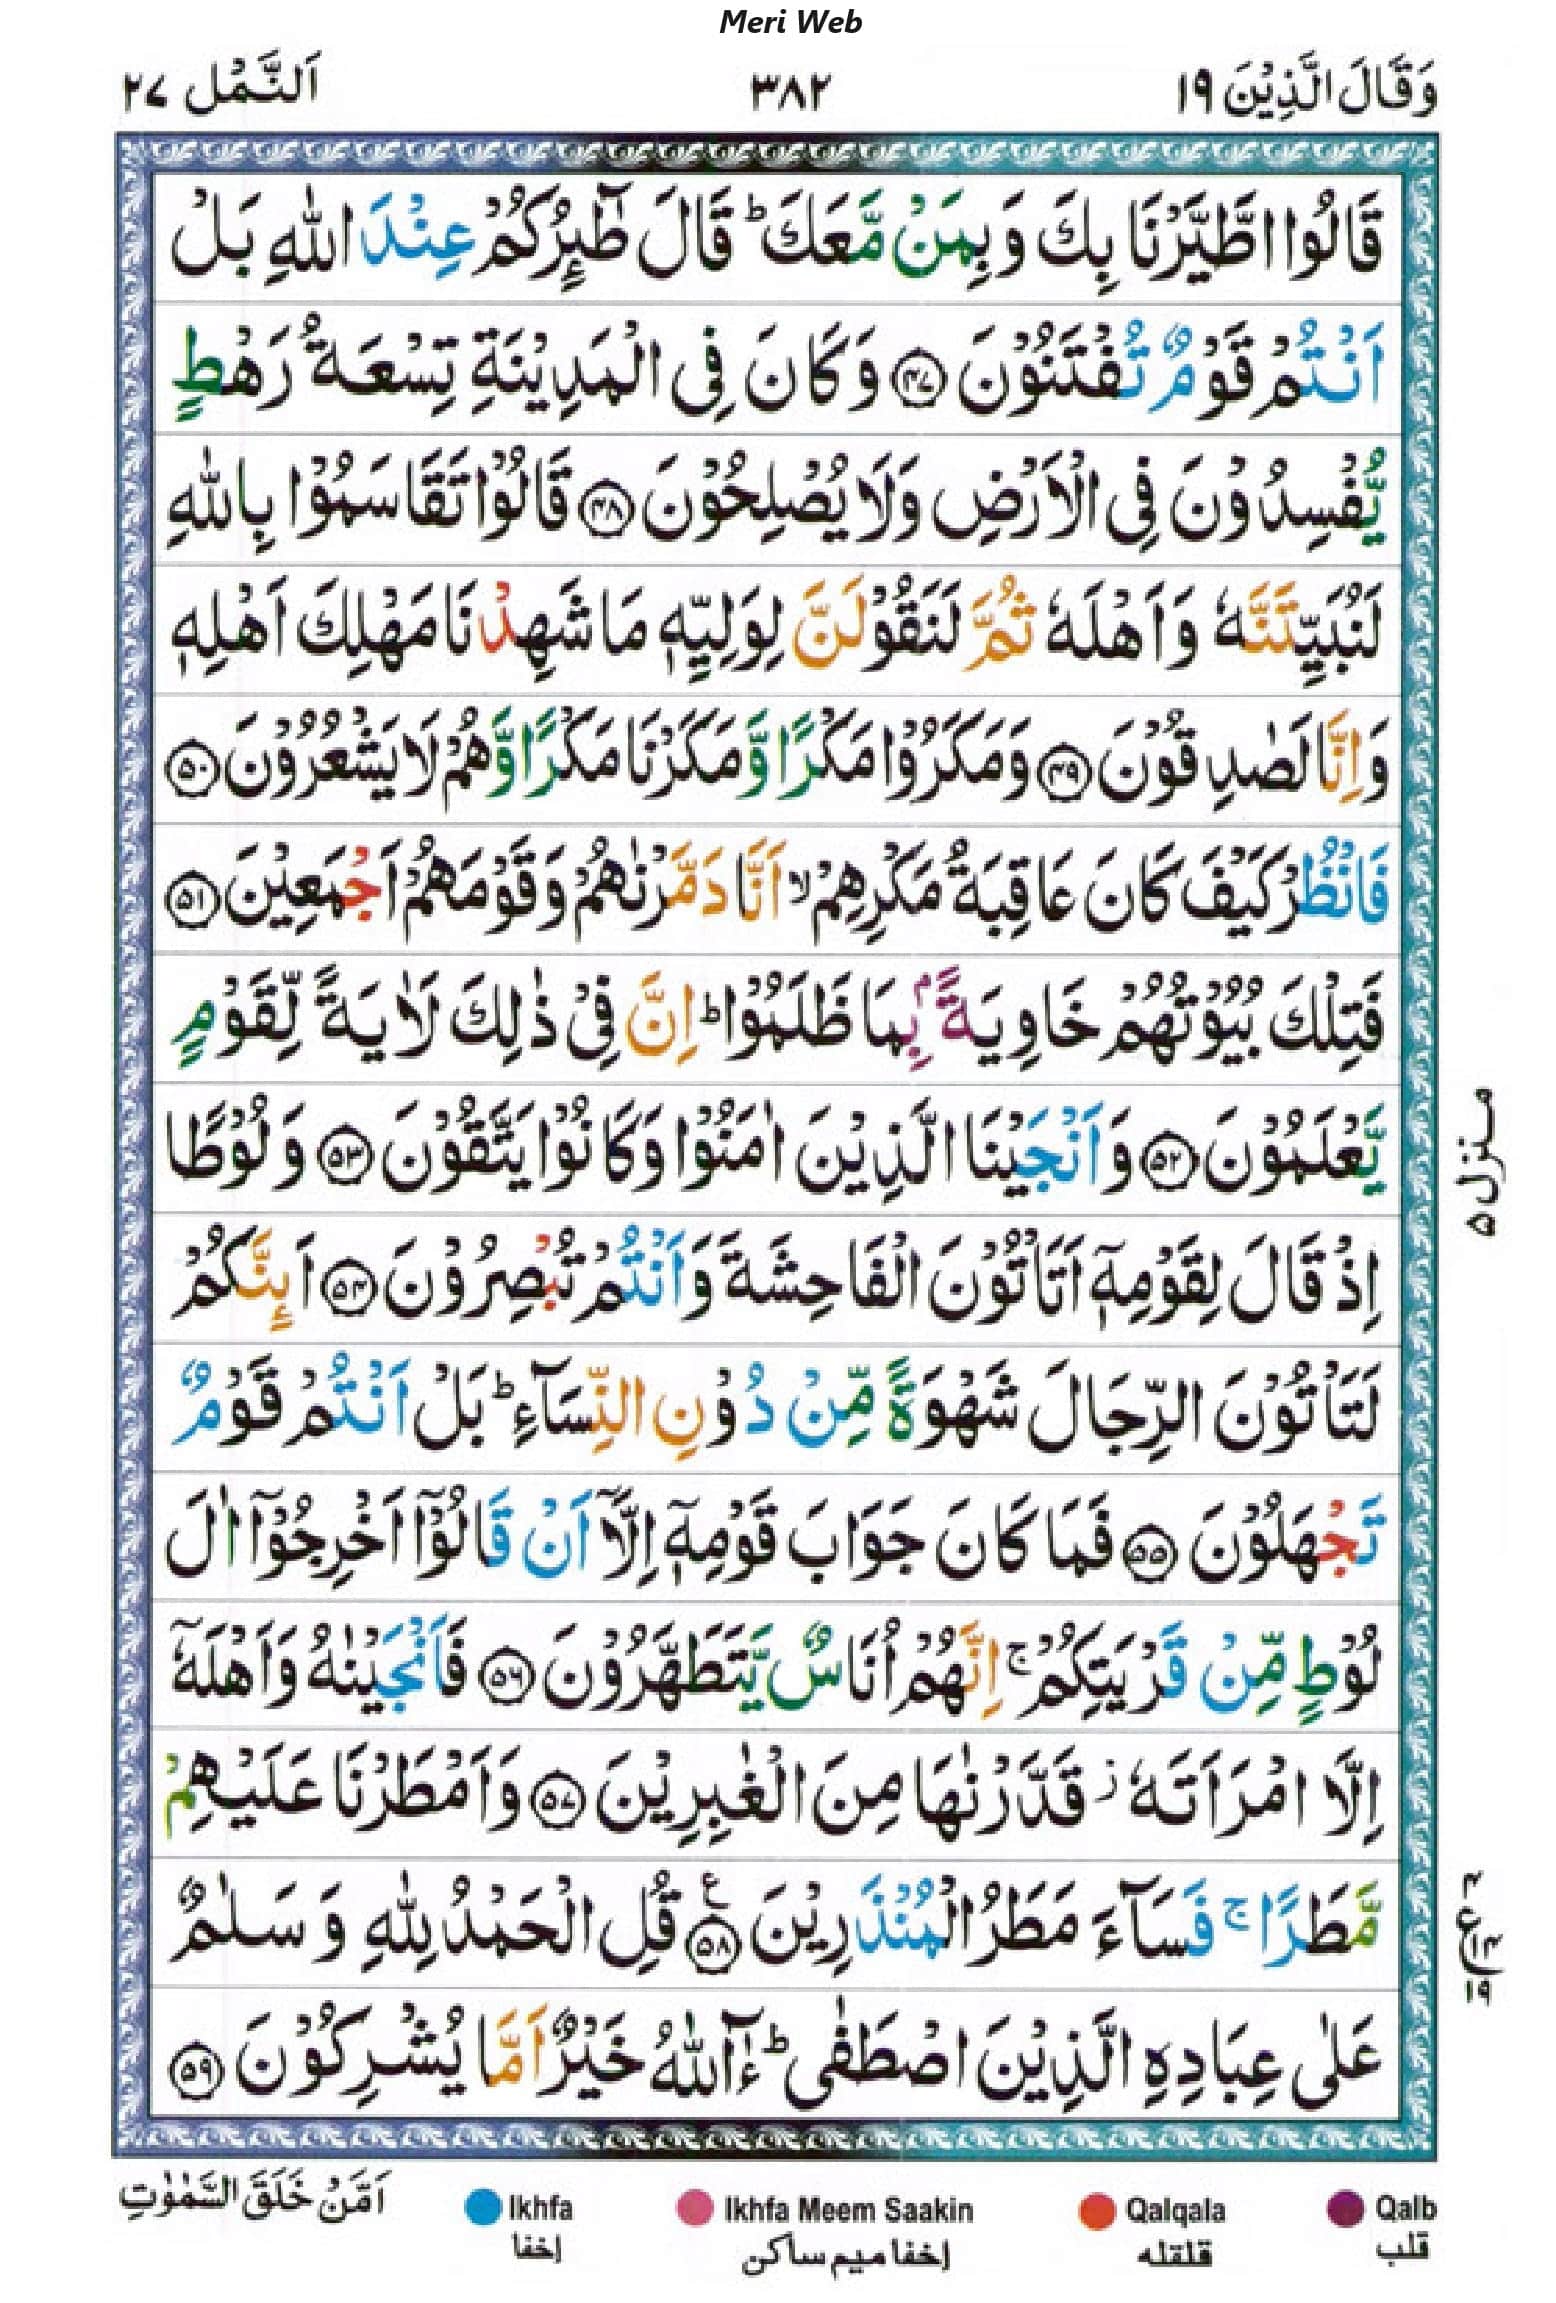 Meri Web
وَقَالَ الَّذِیْنَ ۱۹
۳۸۲
اَلنَّمْل ۲۷
قَالُوا اطَّیَّرْنَا بِكَ وَ بِمَنْ مَّعَكَ ؕ قَالَ طٰٓىِٕرُكُمْ عِنْدَ اللّٰهِ بَلْ
اَنْتُمْ قَوْمٌ تُفْتَنُوْنَ ﴿۴۷﴾ وَ كَانَ فِی الْمَدِیْنَةِ تِسْعَةُ رَهْطٍ
یُّفْسِدُوْنَ فِی الْاَرْضِ وَلَا یُصْلِحُوْنَ ﴿۴۸﴾ قَالُوْا تَقَاسَمُوْا بِاللّٰهِ
لَنُبَیِّتَنَّهٗ وَ اَهْلَهٗ ثُمَّ لَنَقُوْلَنَّ لِوَلِیِّهٖ مَا شَهِدْنَا مَهْلِكَ اَهْلِهٖ
وَ اِنَّا لَصٰدِقُوْنَ ﴿۴۹﴾ وَمَكَرُوْا مَكْرًا وَّ مَكَرْنَا مَكْرًا وَّ هُمْ لَا یَشْعُرُوْنَ ﴿۵۰﴾
فَانْظُرْ كَیْفَ كَانَ عَاقِبَةُ مَكْرِهِمْ ۙ اَنَّا دَمَّرْنٰهُمْ وَ قَوْمَهُمْ اَجْمَعِیْنَ ﴿۵۱﴾
فَتِلْكَ بُیُوْتُهُمْ خَاوِیَةًۢ بِمَا ظَلَمُوْا ؕ اِنَّ فِیْ ذٰلِكَ لَاٰیَةً لِّقَوْمٍ
یَّعْلَمُوْنَ ﴿۵۲﴾ وَ اَنْجَیْنَا الَّذِیْنَ اٰمَنُوْا وَ كَانُوْا یَتَّقُوْنَ ﴿۵۳﴾ وَ لُوْطًا
اِذْ قَالَ لِقَوْمِهٖۤ اَتَاْتُوْنَ الْفَاحِشَةَ وَ اَنْتُمْ تُبْصِرُوْنَ ﴿۵۴﴾ اَىِٕنَّكُمْ
لَتَاْتُوْنَ الرِّجَالَ شَهْوَةً مِّنْ دُوْنِ النِّسَآءِ ؕ بَلْ اَنْتُمْ قَوْمٌ
تَجْهَلُوْنَ ﴿۵۵﴾ فَمَا كَانَ جَوَابَ قَوْمِهٖۤ اِلَّاۤ اَنْ قَالُوْۤا اَخْرِجُوْۤا اٰلَ
لُوْطٍ مِّنْ قَرْیَتِكُمْ ۚ اِنَّهُمْ اُنَاسٌ یَّتَطَهَّرُوْنَ ﴿۵۶﴾ فَاَنْجَیْنٰهُ وَ اَهْلَهٗۤ
اِلَّا امْرَاَتَهٗ ؗ قَدَّرْنٰهَا مِنَ الْغٰبِرِیْنَ ﴿۵۷﴾ وَ اَمْطَرْنَا عَلَیْهِمْ
مَّطَرًا ۚ فَسَآءَ مَطَرُ الْمُنْذَرِیْنَ ﴿۵۸﴾ ع قُلِ الْحَمْدُ لِلّٰهِ وَ سَلٰمٌ
عَلٰی عِبَادِهِ الَّذِیْنَ اصْطَفٰی ؕ ءٰٓاللّٰهُ خَیْرٌ اَمَّا یُشْرِكُوْنَ ﴿۵۹﴾
منزل ۵
۴
ع ۱۴
۱۹
اَمَّنْ خَلَقَ السَّمٰوٰتِ
Ikhfa
إخفا
Ikhfa Meem Saakin
إخفا میم ساکن
Qalqala
قلقله
Qalb
قلب